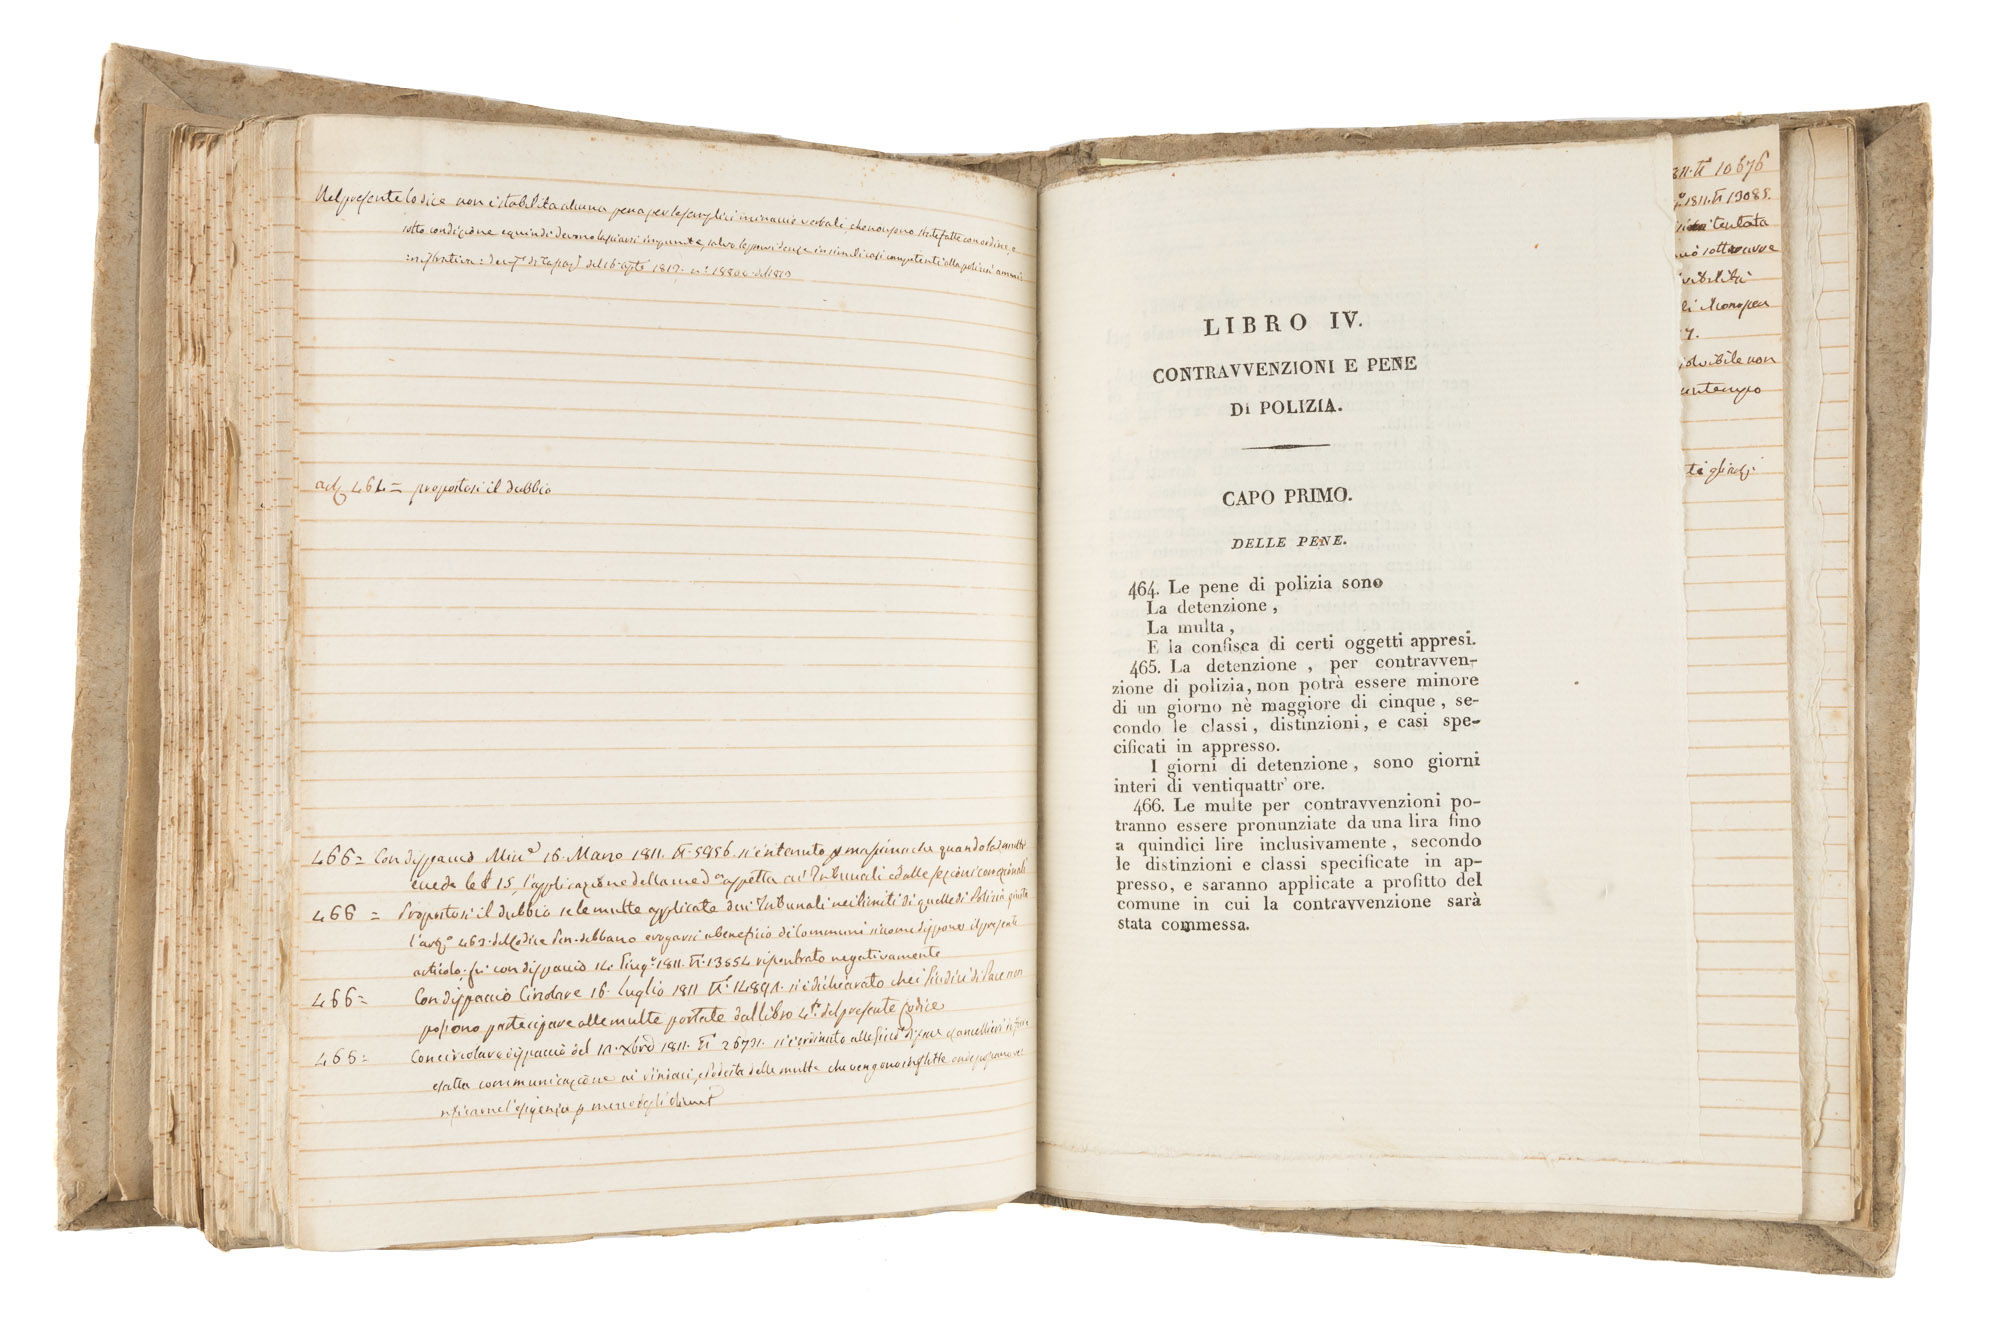 Nel presente Codice non è stabilita alcuna pena per le semplici minaccie verbali, che non sono state fatte con ordine, o
sotto condizione e quindi devono lasciarsi impunite, salve le provvidenze in simili casi competenti alla polizia ammi=
:nistrativa: del 16 1819. n.º
464 = propostosi il dubbio
466 = Con dispaccio Min.º 16. Marzo 1811. N. 5956. si è ritenuto p massima che quando la multa
ecceda le £ 15, l'applicazione della med.ª aspetta ai Tribunali ed alle sezioni correzionali
466 = Propostosi il dubbio se le multe applicate dai Tribunali nei limiti di quelle di Polizia giusta
del Codice Pen. debbano erogarsi a beneficio di Communi siccome dispone il presente
articolo, fu con dispaccio 14. Giug.º 1811. N. 13554 riscontrato negativamente
466 = Con dispaccio Circolare 16. Luglio 1811 N. si è dichiarato che i Giudici di Pace non
possono partecipare alle multe portate dal libro 4.º del presente Codice
466 = Con circolare dispaccio del 1811. N. si è ordinato alle Giud.
esatta communicazione ai Sindaci, e Podestà delle multe che vengono inflitte onde possano ve=
LIBRO IV.
CONTRAVVENZIONI E PENE
DI POLIZIA.
CAPO PRIMO.
DELLE PENE.
464. Le pene di polizia sono
La detenzione,
La multa,
E la confisca di certi oggetti appresi.
465. La detenzione, per contravven-
zione di polizia, non potrà essere minore
di un giorno nè maggiore di cinque, se-
condo le classi, distinzioni, e casi spe-
cificati in appresso.
I giorni di detenzione, sono giorni
interi di ventiquattr' ore.
466. Le multe per contravvenzioni po-
tranno essere pronunziate da una lira fino
a quindici lire inclusivamente, secondo
le distinzioni e classi specificate in ap-
presso, e saranno applicate a profitto del
comune in cui la contravvenzione sarà
stata commessa.
811. N. 10676
1811. N. 13085.
tentata